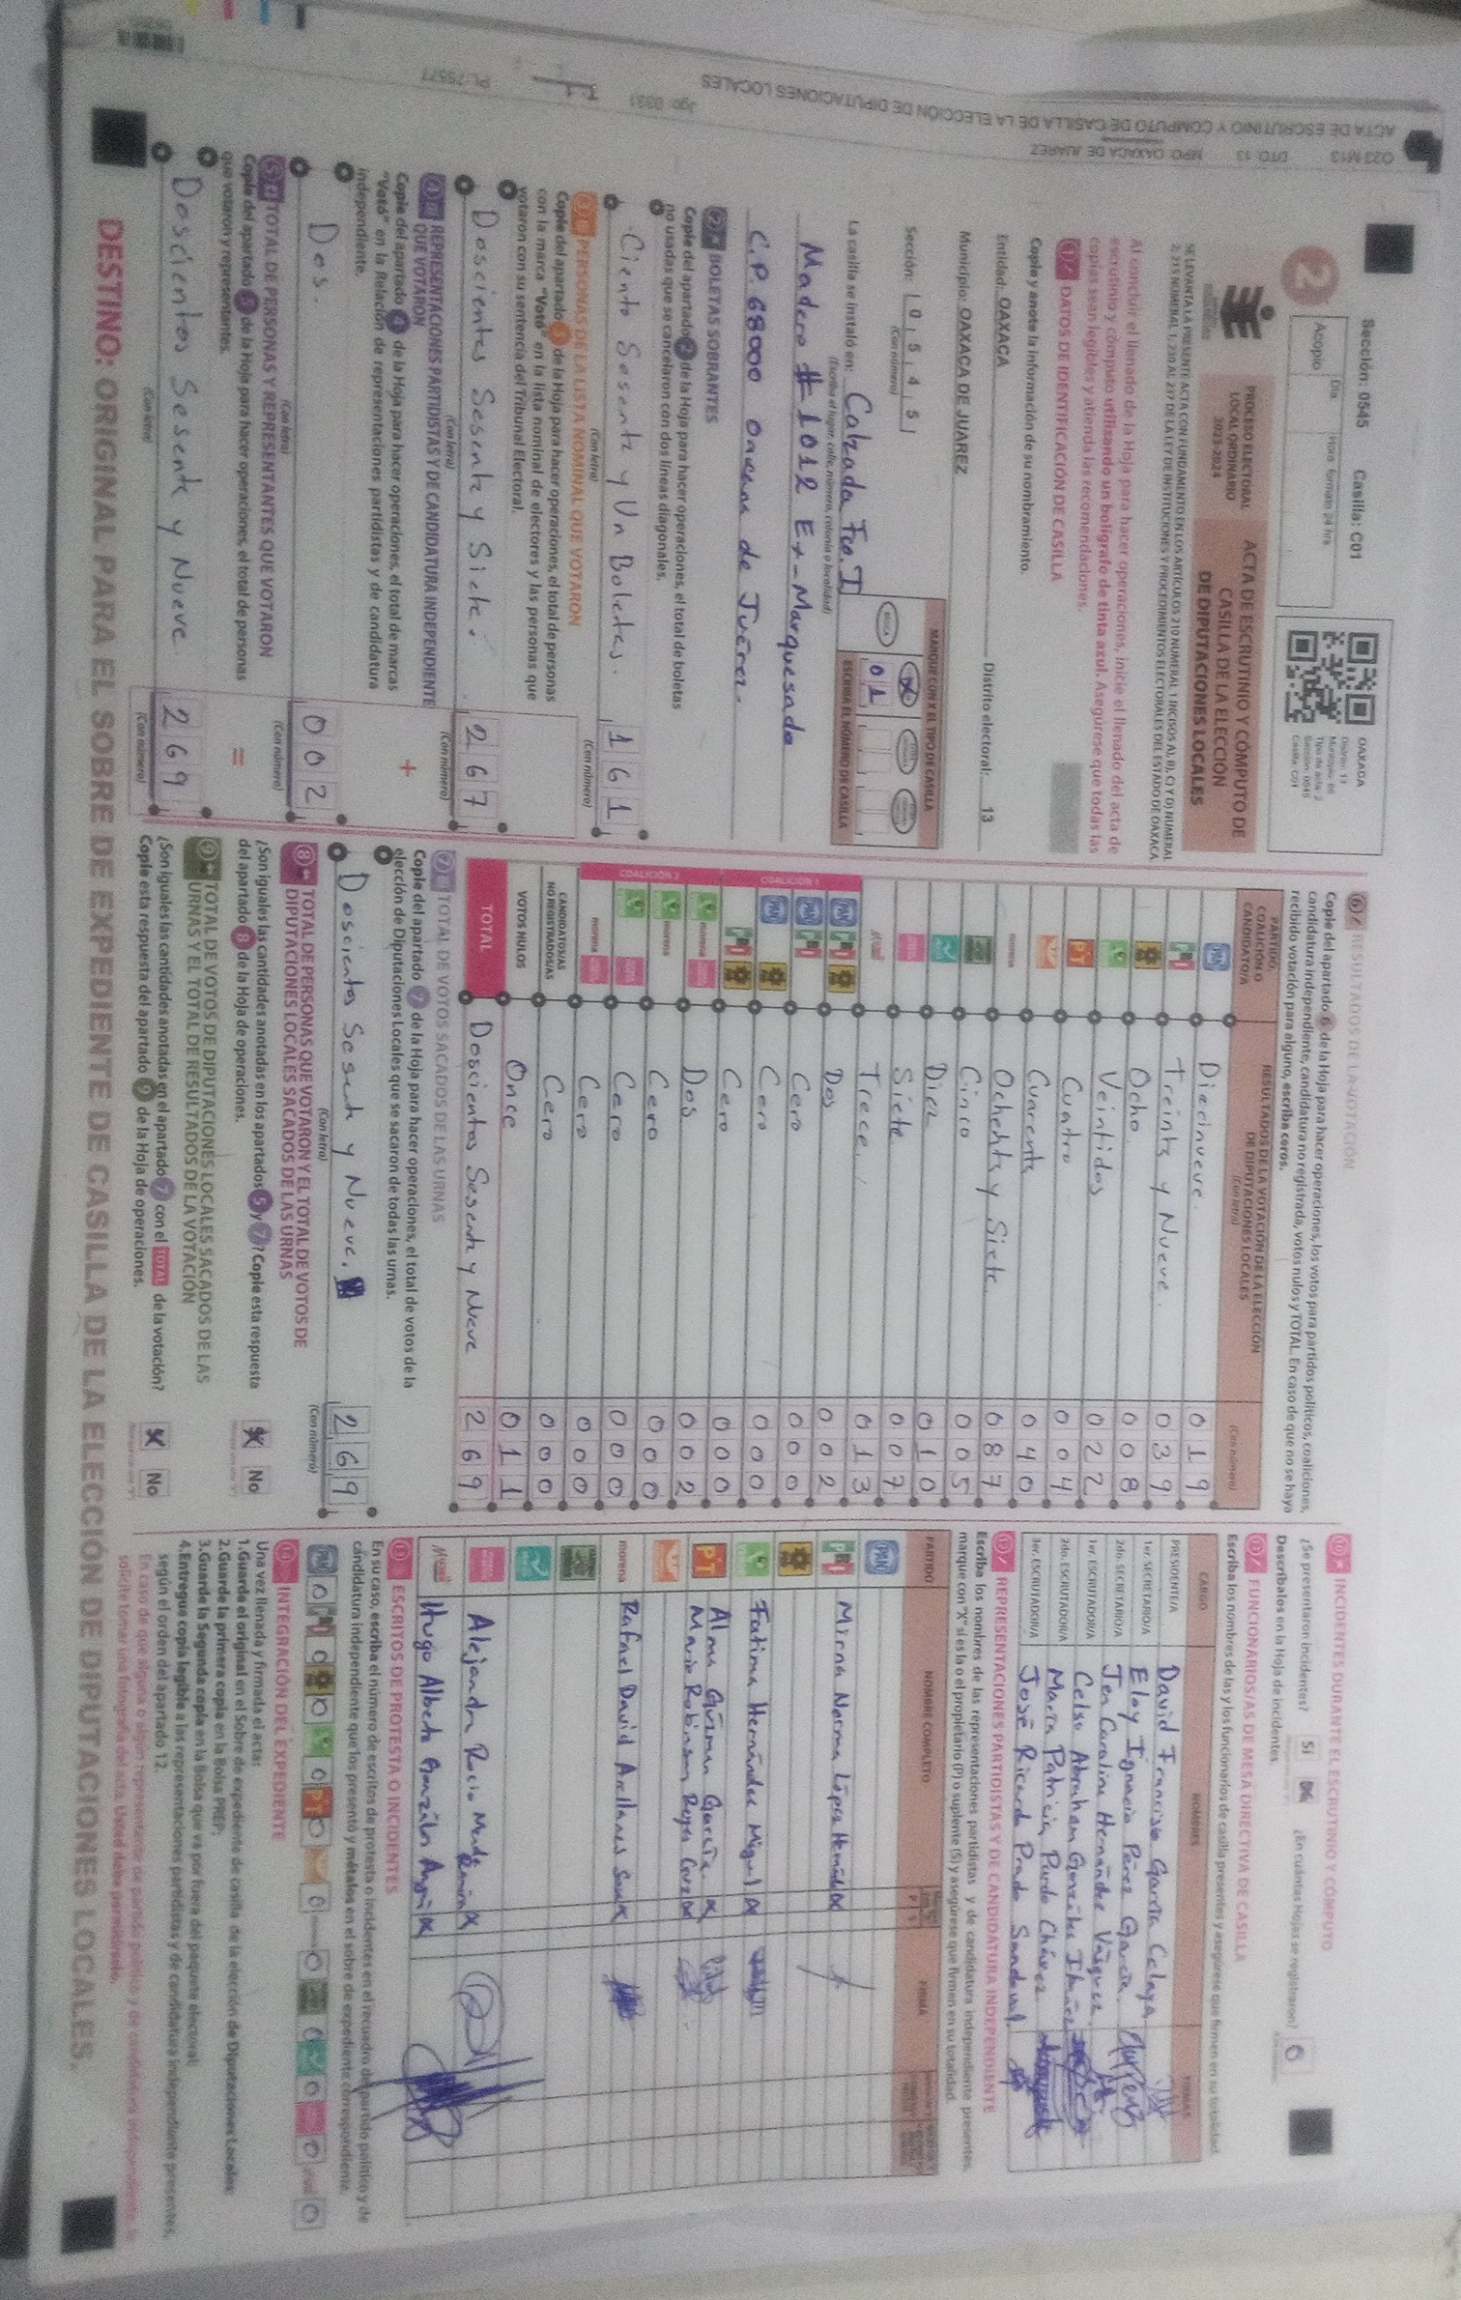 Sección: 0545 Casilla: C01
2
Acopio
Día
Hora formato 24 hrs
OAXACA
Distrito: 13
Sección: 0545
Casilla: C01
PROCESO ELECTORAL
LOCAL ORDINARIO
2023-2024
ACTA DE ESCRUTINIO Y CÓMPUTO DE
CASILLA DE LA ELECCIÓN
DE DIPUTACIONES LOCALES
Al concluir el llenado de la Hoja para hacer operaciones, inicie el llenado del acta de
escrutinio y cómputo utilizando un bolígrafo de tinta azul. Asegúrese que todas las
copias sean legibles y atienda las recomendaciones.
1 DATOS DE IDENTIFICACIÓN DE CASILLA
Copie y anote la información de su nombramiento.
Entidad: OAXACA Distrito electoral: 13
Municipio: OAXACA DE JUAREZ
Sección: 0 5 4 5
(Con número)
MARQUE CON X EL TIPO DE CASILLA
ESCRIBA EL NÚMERO DE CASILLA
0 1
La casilla se instaló en: Calzada Fco. I
(Escriba el lugar, calle, número, colonia o localidad)
Madero #1012 Ex-Marquesado
C.P. 68000 Oaxaca de Juárez.
2 BOLETAS SOBRANTES
Copie del apartado 2 de la Hoja para hacer operaciones, el total de boletas
no usadas que se cancelaron con dos líneas diagonales.
Ciento Sesenta y Un Boletas. 1 6 1
(Con letra) (Con número)
3 PERSONAS DE LA LISTA NOMINAL QUE VOTARON
Copie del apartado 3 de la Hoja para hacer operaciones, el total de personas
con la marca "Votó" en la lista nominal de electores y las personas que
votaron con su sentencia del Tribunal Electoral.
Doscientos Sesenta y Siete. 2 6 7
(Con letra) (Con número)
4 REPRESENTACIONES PARTIDISTAS Y DE CANDIDATURA INDEPENDIENTE
QUE VOTARON
Copie del apartado 4 de la Hoja para hacer operaciones, el total de marcas
"Votó" en la Relación de representaciones partidistas y de candidatura
independiente.
+
Dos. 0 0 2
(Con letra) (Con número)
5 TOTAL DE PERSONAS Y REPRESENTANTES QUE VOTARON
Copie del apartado 5 de la Hoja para hacer operaciones, el total de personas
que votaron y representantes.
=
Doscientos Sesenta y Nueve 2 6 9
(Con letra) (Con número)
6 RESULTADOS DE LA VOTACIÓN
Copie del apartado 6 de la Hoja para hacer operaciones, los votos para partidos políticos, coaliciones,
candidatura independiente, candidatura no registrada, votos nulos y TOTAL. En caso de que no se haya
recibido votación para alguno, escriba ceros.
PARTIDO,
COALICIÓN O
CANDIDATO/A
RESULTADOS DE LA VOTACIÓN DE LA ELECCIÓN
DE DIPUTACIONES LOCALES
(Con letra)
(Con número)
PAN Diecinueve. 0 1 9
PRI Treinta y Nueve. 0 3 9
Ocho 0 0 8
Veintidos 0 2 2
PT Cuatro 0 0 4
Cuarenta 0 4 0
morena Ochenta y Siete. 0 8 7
Cinco 0 0 5
Diez 0 1 0
Siete 0 0 7
Trece. 0 1 3
PAN PRI Dos 0 0 2
COALICIÓN 1
PAN PRI Cero 0 0 0
PAN Cero 0 0 0
PRI Cero 0 0 0
COALICIÓN 2
morena Dos 0 0 2
morena Cero 0 0 0
Cero 0 0 0
morena Cero 0 0 0
CANDIDATOS/AS
NO REGISTRADOS/AS Cero 0 0 0
VOTOS NULOS Once 0 1 1
TOTAL Doscientos Sesenta y Nueve 2 6 9
7 TOTAL DE VOTOS SACADOS DE LAS URNAS
Copie del apartado 7 de la Hoja para hacer operaciones, el total de votos de la
elección de Diputaciones Locales que se sacaron de todas las urnas.
Doscientos Sesenta y Nueve. 2 6 9
(Con letra) (Con número)
8 TOTAL DE PERSONAS QUE VOTARON Y EL TOTAL DE VOTOS DE
DIPUTACIONES LOCALES SACADOS DE LAS URNAS
¿Son iguales las cantidades anotadas en los apartados 5 y 7? Copie esta respuesta
del apartado 8 de la Hoja de operaciones.
No
9 TOTAL DE VOTOS DE DIPUTACIONES LOCALES SACADOS DE LAS
URNAS Y EL TOTAL DE RESULTADOS DE LA VOTACIÓN
¿Son iguales las cantidades anotadas en el apartado 7 con el TOTAL de la votación?
Copie esta respuesta del apartado 9 de la Hoja de operaciones.
No
10 INCIDENTES DURANTE EL ESCRUTINIO Y CÓMPUTO
¿Se presentaron incidentes? Sí ¿En cuántas Hojas se registraron? 0
Descríbalos en la Hoja de incidentes.
11 FUNCIONARIOS/AS DE MESA DIRECTIVA DE CASILLA
Escriba los nombres de las y los funcionarios de casilla presentes y asegúrese que firmen en su totalidad.
CARGO NOMBRES FIRMAS
PRESIDENTE/A David Francisco García Celaya
1er. SECRETARIO/A Eloy Ignacio Pérez García.
2do. SECRETARIO/A Jen Carolina Hernández Vásquez
1er. ESCRUTADOR/A Celso Abraham González
2do. ESCRUTADOR/A Mara Patricia Pardo Chávez
3er. ESCRUTADOR/A José Ricardo Prado Sandoval
12 REPRESENTACIONES PARTIDISTAS Y DE CANDIDATURA INDEPENDIENTE
Escriba los nombres de las representaciones partidistas y de candidatura independiente presentes,
marque con "X" si es la o el propietario (P) o suplente (S) y asegúrese que firmen en su totalidad.
PARTIDO NOMBRE COMPLETO P S FIRMA
PAN
PRI Mirna Norma López
Fatima Hernández Miguel
PT Alma Guzman García
Mario Robinson Reyes Cruz
morena Rafael David Arellanes
Alejandra Rocio
Hugo Alberto González
13 ESCRITOS DE PROTESTA O INCIDENTES
En su caso, escriba el número de escritos de protesta o incidentes en el recuadro del partido político y de
candidatura independiente que los presentó y métalos en el sobre de expediente correspondiente.
PAN 0 PRI 0 0 0 PT 0 0 0 0 0 0 0
14 INTEGRACIÓN DEL EXPEDIENTE
Una vez llenada y firmada el acta:
1. Guarde el original en el Sobre de expediente de casilla de la elección de Diputaciones Locales.
2. Guarde la primera copia en la Bolsa PREP.
3. Guarde la Segunda copia en la Bolsa que va por fuera del paquete electoral.
4. Entregue copia legible a las representaciones partidistas y de candidatura independiente presentes,
según el orden del apartado 12.
En caso de que alguna o algún representante de partido político y de candidatura independiente, le
solicite tomar una fotografía del acta, Usted debe permitírselo.
DESTINO: ORIGINAL PARA EL SOBRE DE EXPEDIENTE DE CASILLA DE LA ELECCIÓN DE DIPUTACIONES LOCALES.
ACTA DE ESCRUTINIO Y COMPUTO DE CASILLA DE LA ELECCION DE DIPUTACIONES LOCALES
023 M13 DTO. 13 MPO. OAXACA DE JUAREZ